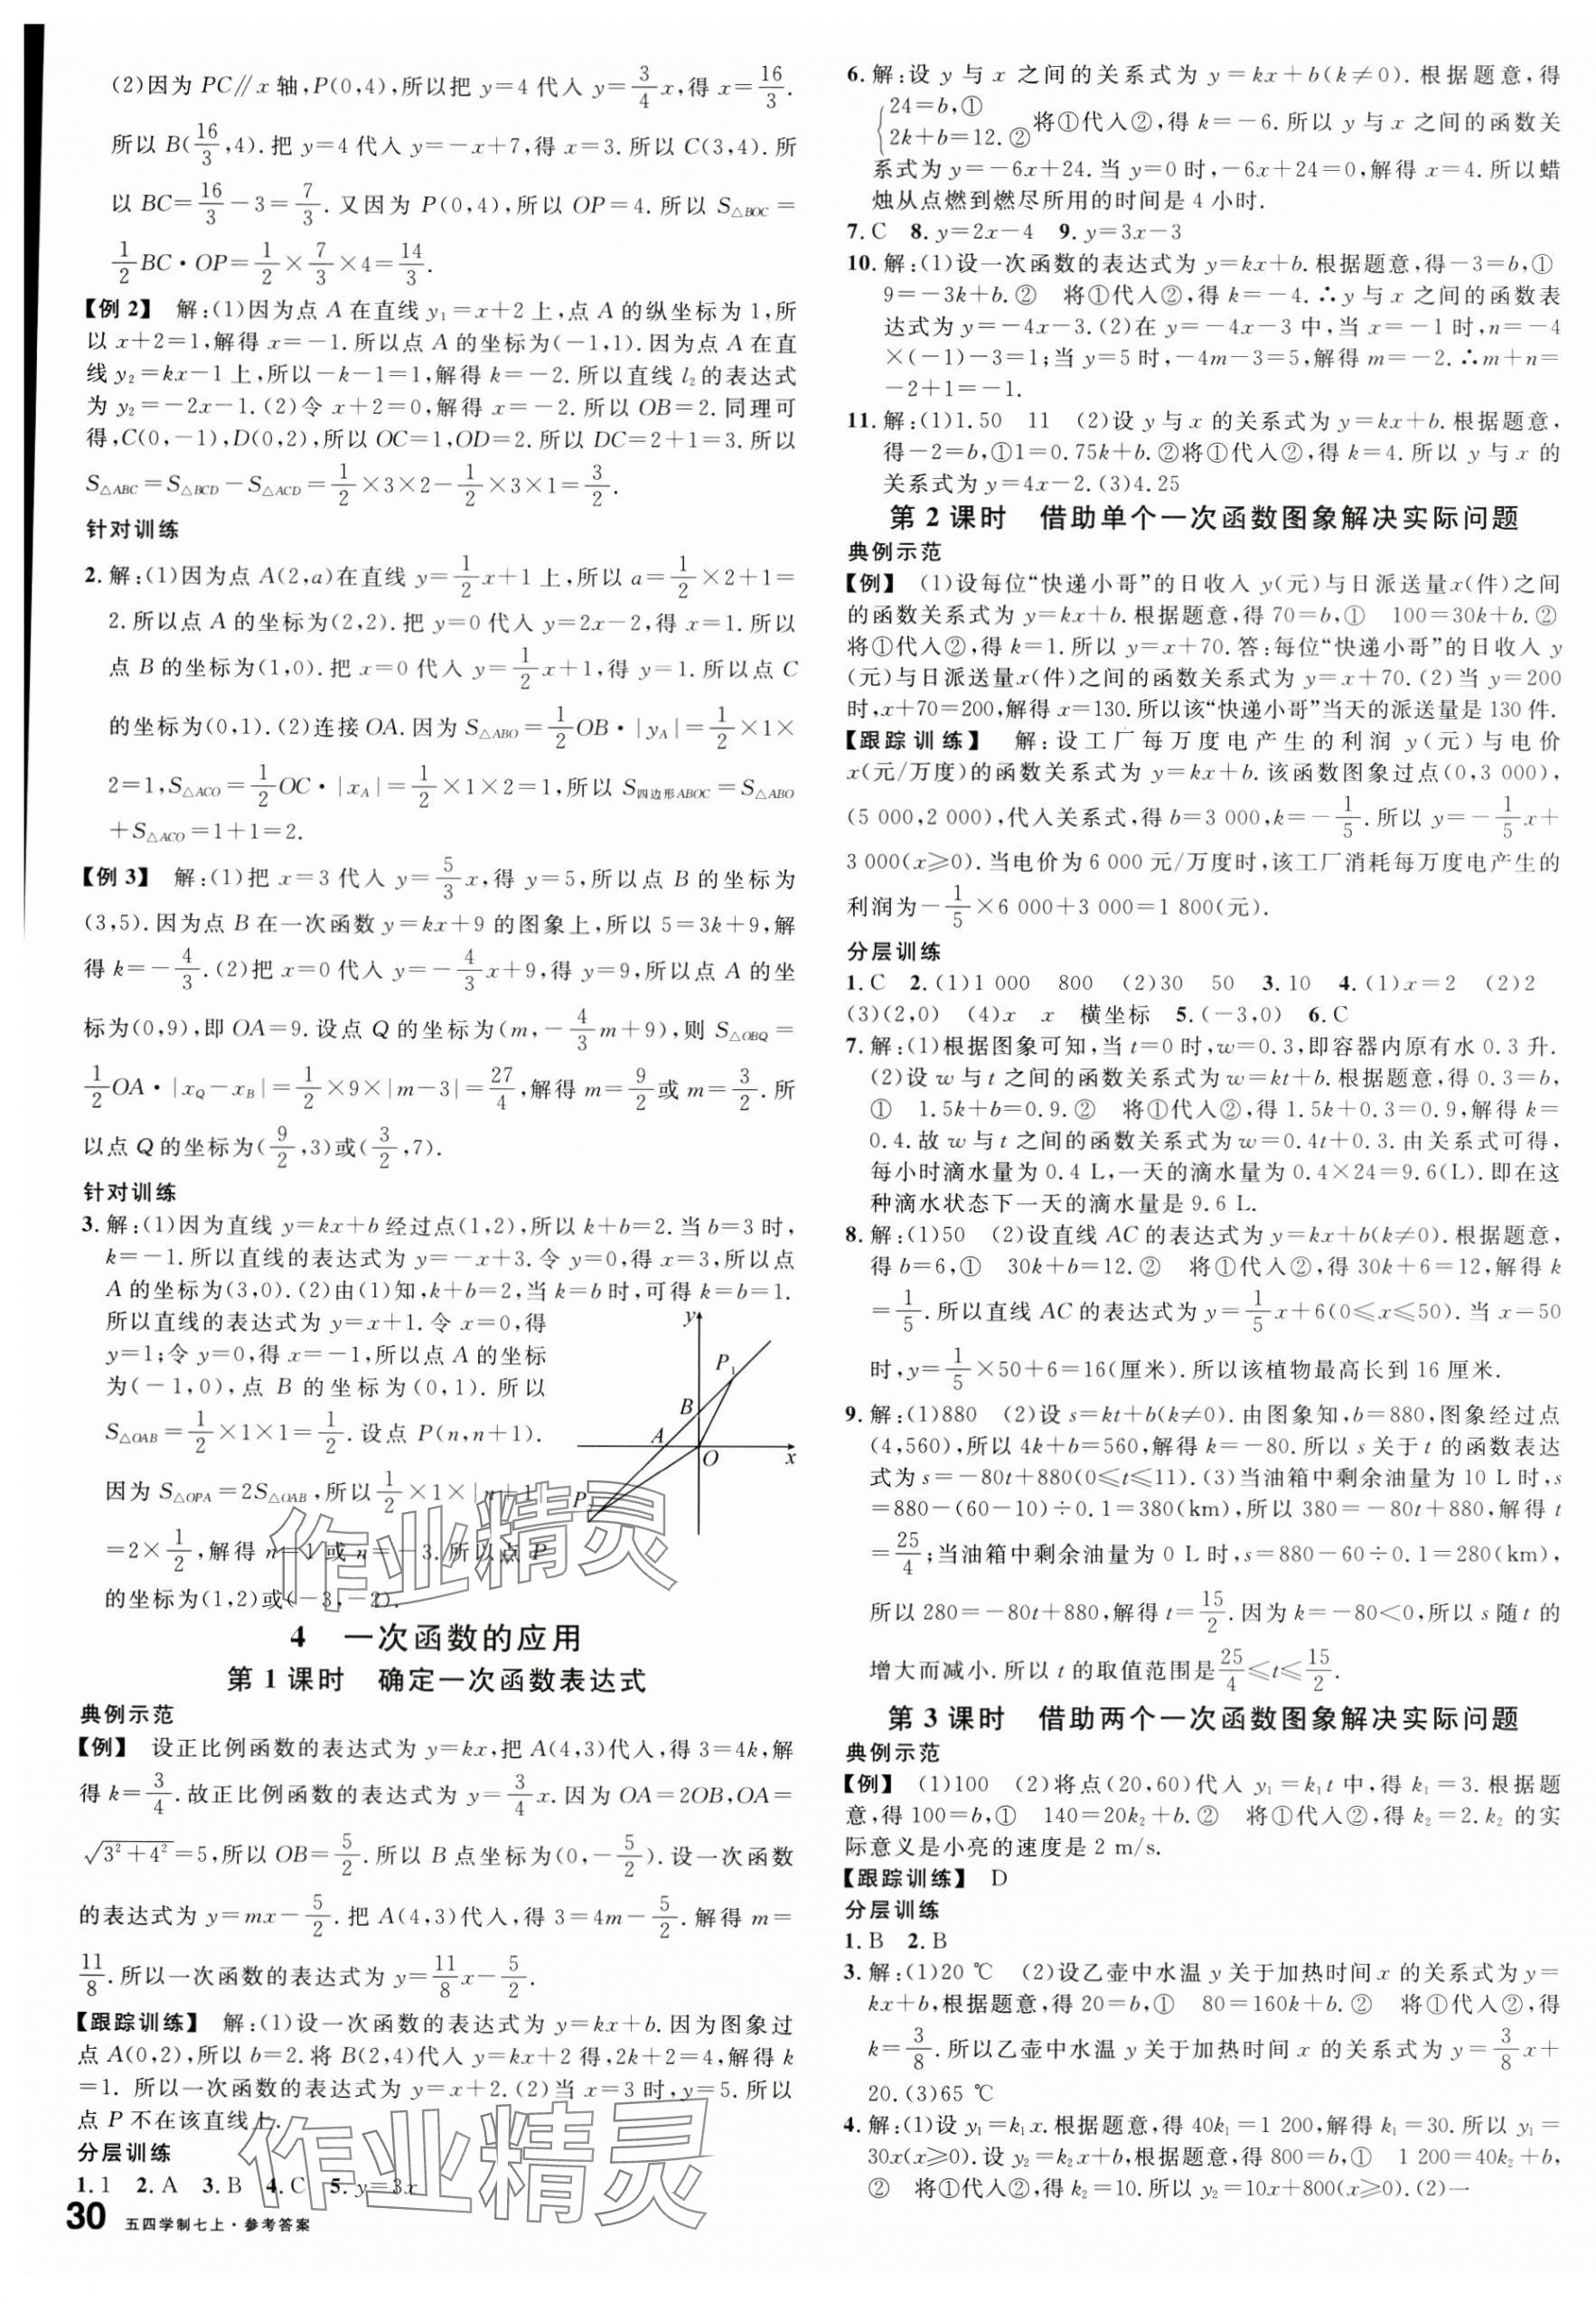 (2)因为 PC∥x 轴,P(0,4),所以把 y=4 代入 y=3/4x,得 x=16/3.
所以 B(16/3,4).把 y=4 代入 y=-x+7,得 x=3.所以 C(3,4).所
以 BC=16/3-3=7/3.又因为 P(0,4),所以 OP=4.所以 S△BOC=
1/2BC·OP=1/2×7/3×4=14/3.
【例2】 解:(1)因为点 A 在直线 y₁=x+2 上,点 A 的纵坐标为 1,所
以 x+2=1,解得 x=-1.所以点 A 的坐标为(-1,1).因为点 A 在直
线 y₂=kx-1 上,所以-k-1=1,解得 k=-2.所以直线 l₂ 的表达式
为 y₂=-2x-1.(2)令 x+2=0,解得 x=-2.所以 OB=2.同理可
得,C(0,-1),D(0,2),所以 OC=1,OD=2.所以 DC=2+1=3.所以
S△ABC=S△BCD-S△ACD=1/2×3×2-1/2×3×1=3/2.
针对训练
2.解:(1)因为点 A(2,a)在直线 y=1/2x+1 上,所以 a=1/2×2+1=
2.所以点 A 的坐标为(2,2).把 y=0 代入 y=2x-2,得 x=1.所以
点 B 的坐标为(1,0).把 x=0 代入 y=1/2x+1,得 y=1.所以点 C
的坐标为(0,1).(2)连接 OA.因为 S△ABO=1/2OB·|yA|=1/2×1×
2=1,S△ACO=1/2OC·|xA|=1/2×1×2=1,所以 S四边形ABOC=S△ABO
+S△ACO=1+1=2.
【例3】 解:(1)把 x=3 代入 y=5/3x,得 y=5,所以点 B 的坐标为
(3,5).因为点 B 在一次函数 y=kx+9 的图象上,所以 5=3k+9,解
得 k=-4/3.(2)把 x=0 代入 y=-4/3x+9,得 y=9,所以点 A 的坐
标为(0,9),即 OA=9.设点 Q 的坐标为(m,-4/3m+9),则 S△OBQ=
1/2OA·|xQ-xB|=1/2×9×|m-3|=27/4,解得 m=9/2或 m=3/2.所
以点 Q 的坐标为(9/2,3)或(3/2,7).
针对训练
3.解:(1)因为直线 y=kx+b 经过点(1,2),所以 k+b=2.当 b=3 时,
k=-1.所以直线的表达式为 y=-x+3.令 y=0,得 x=3,所以点
A 的坐标为(3,0).(2)由(1)知,k+b=2,当 k=b 时,可得 k=b=1.
所以直线的表达式为 y=x+1.令 x=0,得
y=1;令 y=0,得 x=-1,所以点 A 的坐标
为(-1,0),点 B 的坐标为(0,1).所以
S△OAB=1/2×1×1=1/2.设点 P(n,n+1).
因为 S△OPA=2S△OAB,所以1/2×1×|n+1|
=2×1/2,解得 n=1 或 n=-3.所以点 P
的坐标为(1,2)或(-3,-2).
y
P₁
B
A
O
x
P₂
4 一次函数的应用
第1课时 确定一次函数表达式
典例示范
【例】 设正比例函数的表达式为 y=kx,把 A(4,3)代入,得 3=4k,解
得 k=3/4.故正比例函数的表达式为 y=3/4x.因为 OA=2OB,OA=
√(3²+4²)=5,所以 OB=5/2.所以 B 点坐标为(0,-5/2).设一次函数
的表达式为 y=mx-5/2.把 A(4,3)代入,得 3=4m-5/2.解得 m=
11/8.所以一次函数的表达式为 y=11/8x-5/2.
【跟踪训练】 解:(1)设一次函数的表达式为 y=kx+b.因为图象过
点 A(0,2),所以 b=2.将 B(2,4)代入 y=kx+2 得,2k+2=4,解得 k
=1. 所以一次函数的表达式为 y=x+2.(2)当 x=3 时,y=5.所以
点 P 不在该直线上.
分层训练
1.1 2.A 3.B 4.C 5.y=3x
30 五四学制七上·参考答案
6.解:设 y 与 x 之间的关系式为 y=kx+b(k≠0).根据题意,得
{24=b,①
2k+b=12.②将①代入②,得 k=-6.所以 y 与 x 之间的函数关
系式为 y=-6x+24.当 y=0 时,-6x+24=0,解得 x=4.所以蜡
烛从点燃到燃尽所用的时间是 4 小时.
7.C 8.y=2x-4 9.y=3x-3
10.解:(1)设一次函数的表达式为 y=kx+b.根据题意,得-3=b,①
9=-3k+b.② 将①代入②,得 k=-4.∴y 与 x 之间的函数表
达式为 y=-4x-3.(2)在 y=-4x-3 中,当 x=-1 时,n=-4
×(-1)-3=1;当 y=5 时,-4m-3=5,解得 m=-2.∴m+n=
-2+1=-1.
11.解:(1)1.50 11 (2)设 y 与 x 的关系式为 y=kx+b.根据题意,
得-2=b,①1=0.75k+b.②将①代入②,得 k=4.所以 y 与 x 的
关系式为 y=4x-2.(3)4.25
第2课时 借助单个一次函数图象解决实际问题
典例示范
【例】 (1)设每位“快递小哥”的日收入 y(元)与日派送量x(件)之间
的函数关系式为 y=kx+b.根据题意,得 70=b,① 100=30k+b.②
将①代入②,得 k=1.所以 y=x+70.答:每位“快递小哥”的日收入 y
(元)与日派送量x(件)之间的函数关系式为 y=x+70.(2)当 y=200
时,x+70=200,解得 x=130.所以该“快递小哥”当天的派送量是 130 件.
【跟踪训练】 解:设工厂每万度电产生的利润 y(元)与电价
x(元/万度)的函数关系式为 y=kx+b.该函数图象过点(0,3 000),
(5 000,2 000),代入关系式,得 b=3 000,k=-1/5.所以 y=-1/5x+
3 000(x≥0).当电价为 6 000 元/万度时,该工厂消耗每万度电产生的
利润为-1/5×6 000+3 000=1 800(元).
分层训练
1.C 2.(1)1 000 800 (2)30 50 3.10 4.(1)x=2 (2)2
(3)(2,0) (4)x x 横坐标 5.(-3,0) 6.C
7.解:(1)根据图象可知,当 t=0 时,w=0.3,即容器内原有水 0.3 升.
(2)设 w 与 t 之间的函数关系式为 w=kt+b.根据题意,得 0.3=b,
① 1.5k+b=0.9.② 将①代入②,得 1.5k+0.3=0.9,解得 k=
0.4.故 w 与 t 之间的函数关系式为 w=0.4t+0.3.由关系式可得,
每小时滴水量为 0.4 L,一天的滴水量为 0.4×24=9.6(L).即在这
种滴水状态下一天的滴水量是 9.6 L.
8.解:(1)50 (2)设直线 AC 的表达式为 y=kx+b(k≠0).根据题意,
得 b=6,① 30k+b=12.② 将①代入②,得 30k+6=12,解得 k
=1/5.所以直线 AC 的表达式为 y=1/5x+6(0≤x≤50).当 x=50
时,y=1/5×50+6=16(厘米).所以该植物最高长到 16 厘米.
9.解:(1)880 (2)设 s=kt+b(k≠0).由图象知,b=880,图象经过点
(4,560),所以 4k+b=560,解得 k=-80.所以 s 关于 t 的函数表达
式为 s=-80t+880(0≤t≤11).(3)当油箱中剩余油量为 10 L 时,s
=880-(60-10)÷0.1=380(km),所以 380=-80t+880,解得 t
=25/4;当油箱中剩余油量为 0 L 时,s=880-60÷0.1=280(km),
所以 280=-80t+880,解得 t=15/2.因为 k=-80<0,所以 s 随 t 的
增大而减小.所以 t 的取值范围是25/4≤t≤15/2.
第3课时 借助两个一次函数图象解决实际问题
典例示范
【例】 (1)100 (2)将点(20,60)代入 y₁=k₁t 中,得 k₁=3.根据题
意,得 100=b,① 140=20k₂+b.② 将①代入②,得 k₂=2.k₂ 的实
际意义是小亮的速度是 2 m/s.
【跟踪训练】 D
分层训练
1.B 2.B
3.解:(1)20 ℃ (2)设乙壶中水温 y 关于加热时间 x 的关系式为 y=
kx+b,根据题意,得 20=b,① 80=160k+b.② 将①代入②,得
k=3/8.所以乙壶中水温 y 关于加热时间 x 的关系式为 y=3/8x+
20.(3)65 ℃
4.解:(1)设 y₁=k₁x.根据题意,得 40k₁=1 200,解得 k₁=30.所以 y₁=
30x(x≥0).设 y₂=k₂x+b,根据题意,得 800=b,① 1 200=40k₂+b,
② 将①代入②,得 k₂=10.所以 y₂=10x+800(x≥0).(2)一
作业精灵
作业精灵